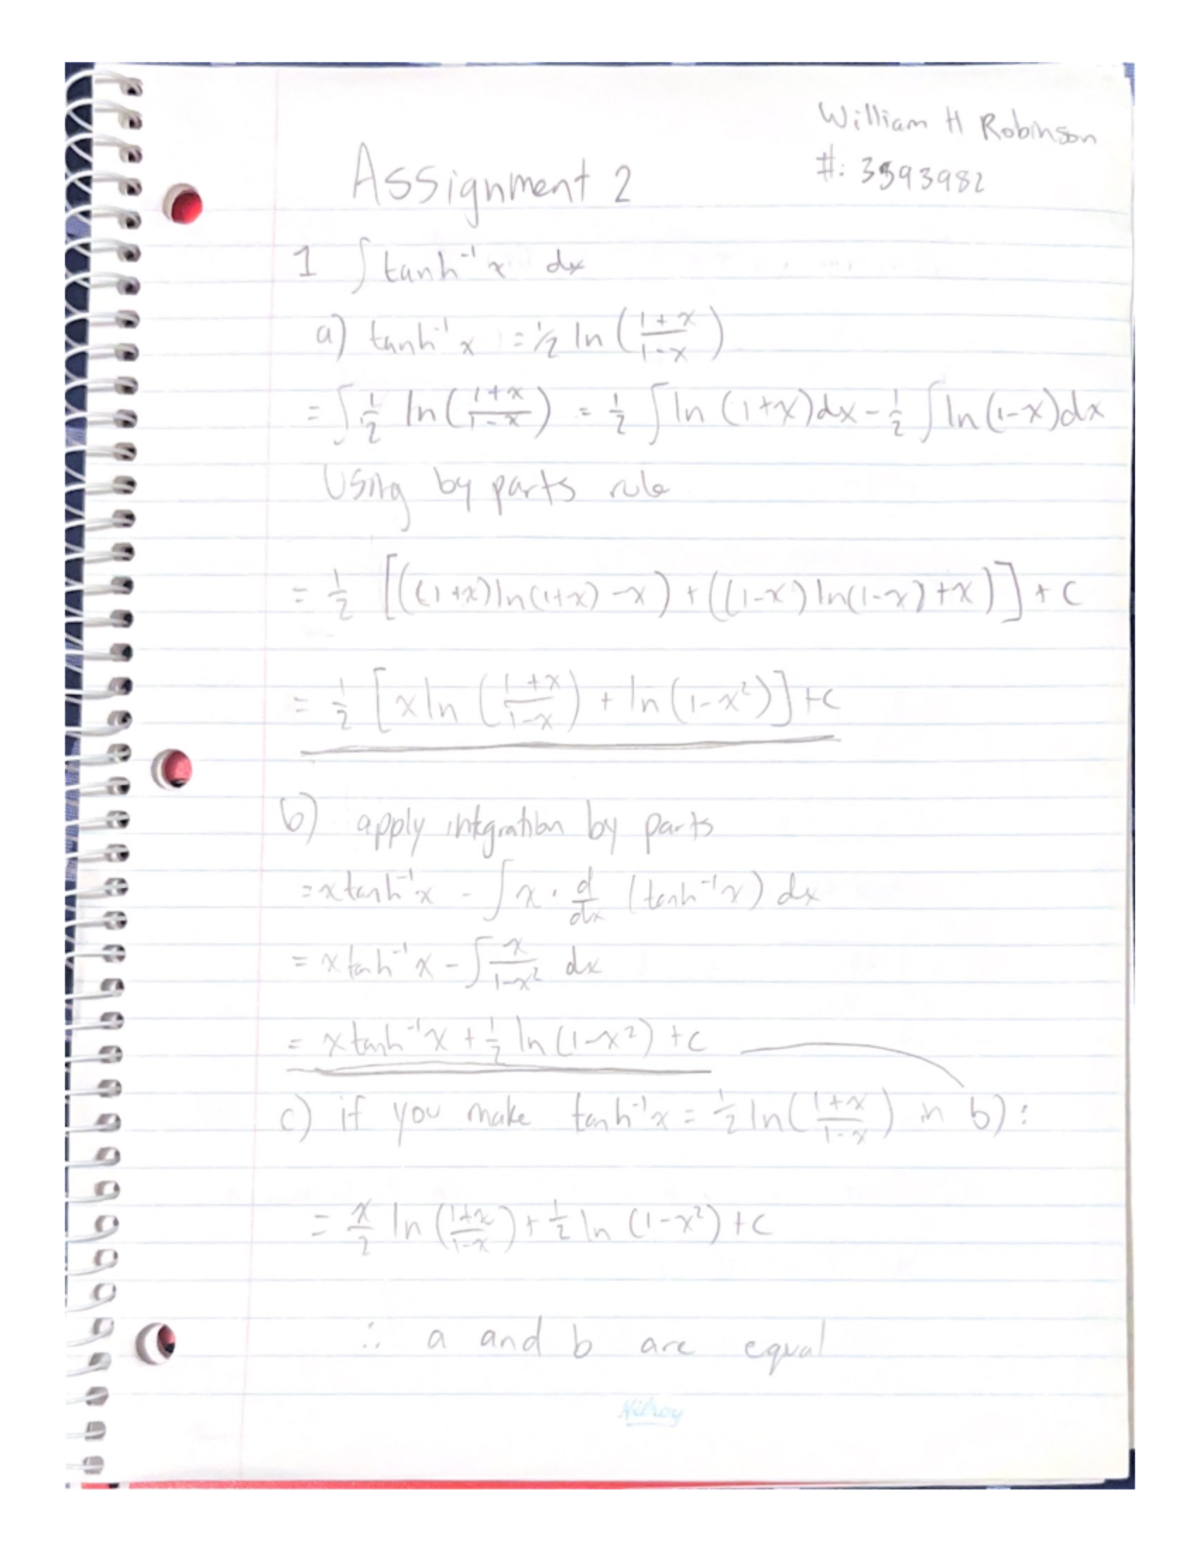 William H Robinson
#: 3593982
Assignment 2
1 ∫ tanh⁻¹ x dx
a) tanh⁻¹ x = ½ ln (1+x / 1-x)
= ∫ ½ ln (1+x / 1-x) = ½ ∫ ln (1+x) dx - ½ ∫ ln (1-x) dx
Using by parts rule
= ½ [((1+x) ln(1+x) - x) + ((1-x) ln(1-x) + x)] + C
= ½ [x ln (1+x / 1-x) + ln (1-x²)] + C
b) apply intgration by parts
= x tanh⁻¹ x - ∫ x · d/dx (tanh⁻¹ x) dx
= x tanh⁻¹ x - ∫ x / 1-x² dx
= x tanh⁻¹ x + ½ ln (1-x²) + C
c) if you make tanh⁻¹ x = ½ ln (1+x / 1-x) in b):
= x/2 ln (1+x / 1-x) + ½ ln (1-x²) + C
∴ a and b are equal
Hilroy